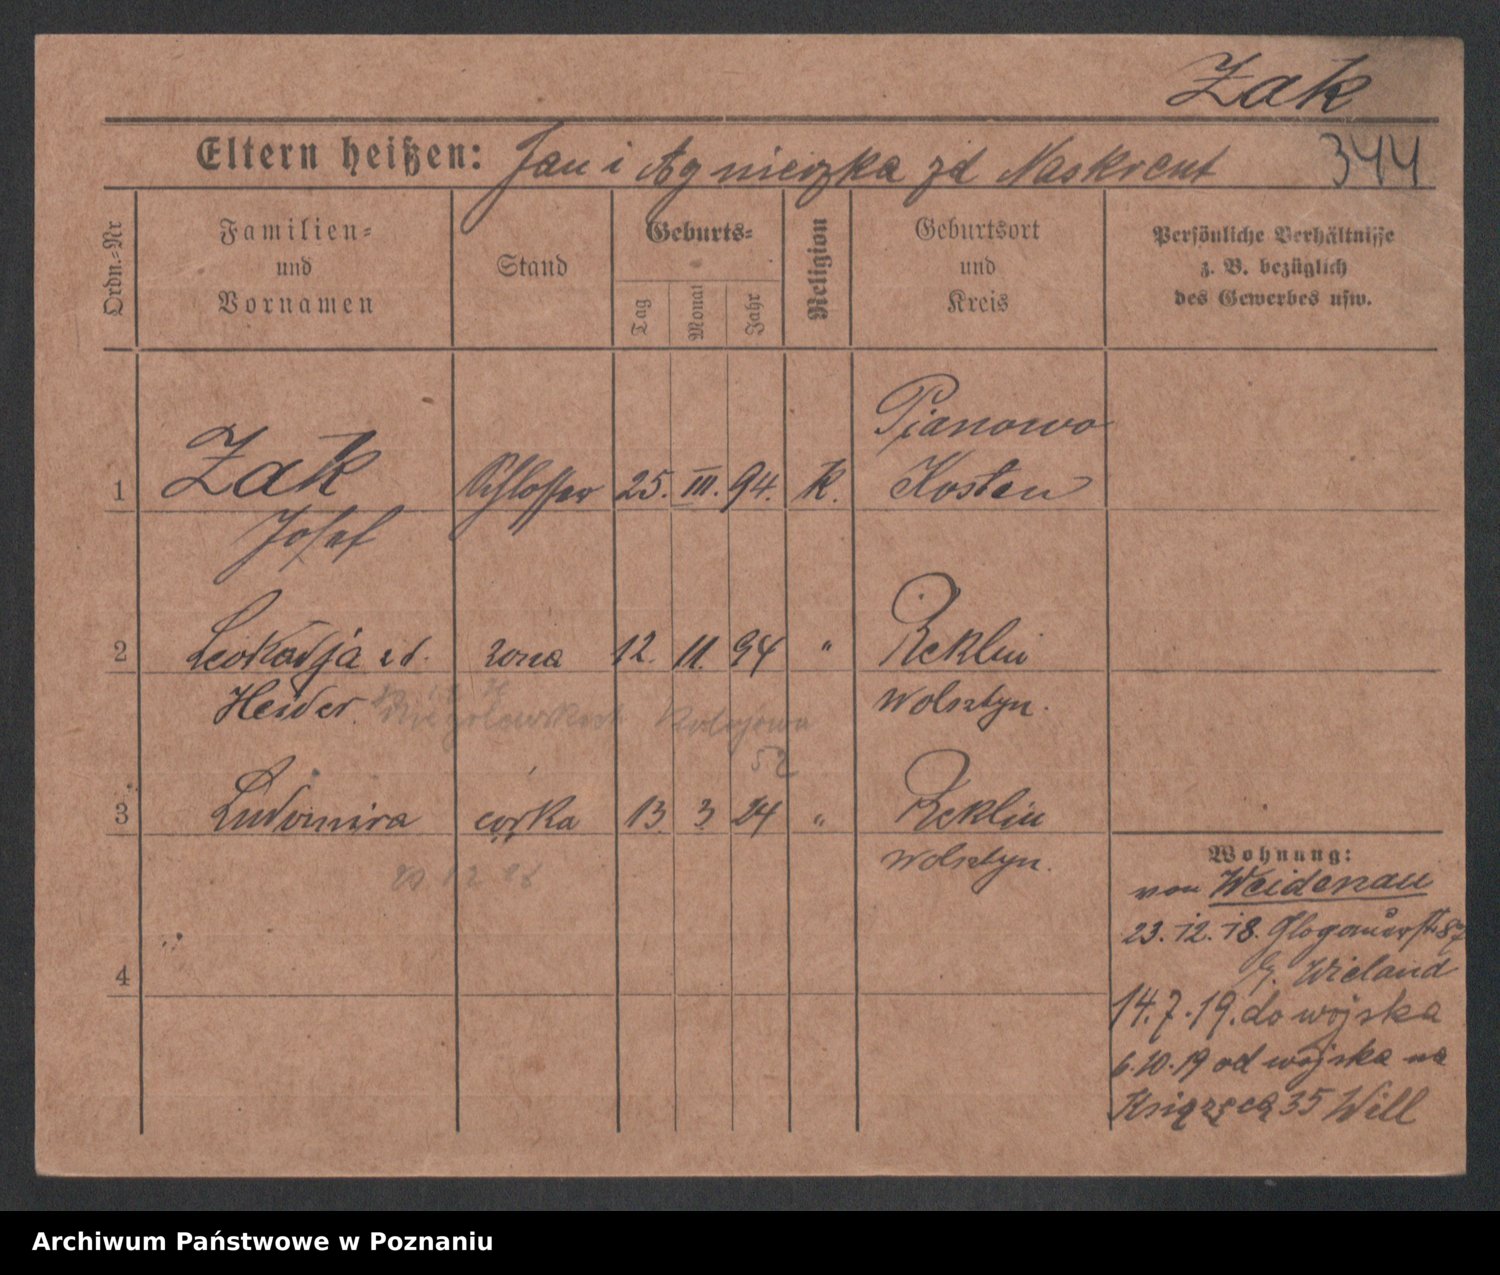 Zak
Eltern heißen: Jan i Agnieszka zd Naskrent 344
Ordn.-Nr
Familien-
und
Vornamen
Stand
Geburts-
Tag
Monat
Jahr
Religion
Geburtsort
und
Kreis
Persönliche Verhältnisse
z. B. bezüglich
des Gewerbes usw.
Pianowo
1 Zak Schlosser 25. III. 94. K. Kosten
Josef
2 Leokadja zd. zona 12. 11. 94 " Reklin
Heider. Wolsztyn.
52
3 Ludomira corka 13 3 24 " Reklin
Wolsztyn.
Wohnung:
von Weidenau
23. 12. 18. Glogauerstr. 87
b/. Wieland
4
14. 7. 19. do wojska
6. 10. 19 od wojska na
Książęcą 35 Will
Archiwum Państwowe w Poznaniu